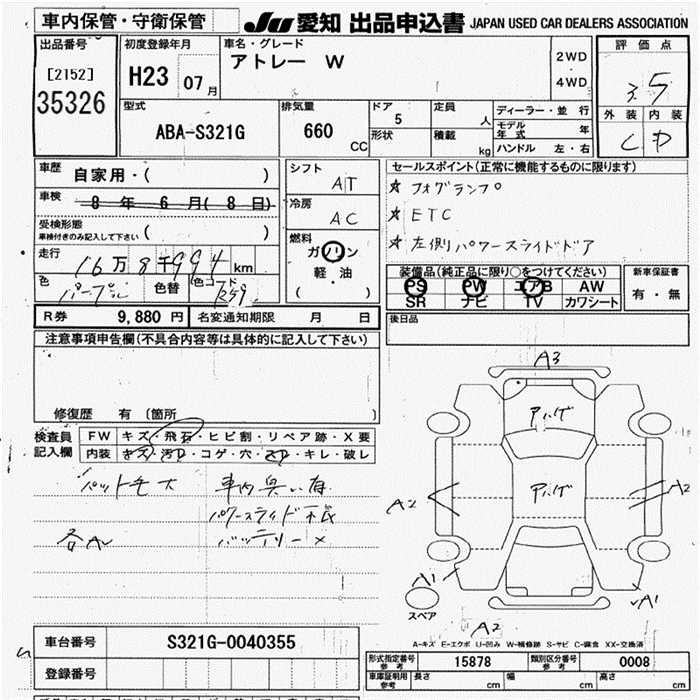 車内保管・守衛保管 JU 愛知 出品申込書 JAPAN USED CAR DEALERS ASSOCIATION
出品番号 初度登録年月 車名・グレード 評価点
[2152] H23 07月 アトレー W 2WD 4WD 3.5
35326
型式 排気量 ドア 定員 ディーラー・並行 外装 内装
ABA-S321G 660 CC 5 人 モデル年式 年 C D
形状 積載 kg ハンドル 左・右
車歴 自家用・( ) シフト AT セールスポイント(正常に機能するものに限ります)
車検 8年 6月(8日) 冷房 AC ☆ フォグランプ
受検形態 ( ) ☆ ETC
車検付きのみ記入して下さい 燃料 ☆ 左側パワースライドドア
走行 16万8千994km ガソリン
色 パープル 色替 色コード 軽・油 ( )
装備品(純正品に限り○をつけてください) 新車保証書
PS PW エアB AW 有・無
SR ナビ TV カワシート
R券 9,880円 名変通知期限 月 日 後日品
注意事項申告欄(不具合内容等は具体的に記入して下さい)
修復歴 有 〔箇所 〕
検査員記入欄 FW キズ・飛石・ヒビ割・リペア跡・X要
内装 キズ・汚レ・コゲ・穴・スレ・キレ・破レ
ペット毛大 車内臭い有
パワースライド不良
各A バッテリー×
A3
アハゲ
アハゲ
A2 A2
A1 A1
スペア
A2
A-キズ E-エクボ U-凹み W-補修跡 S-サビ C-腐食 XX-交換済
車台番号 S321G-0040355
登録番号
形式指定番号 参考 15878 類別区分番号 参考 0008
車庫証明用 参考 長さ cm 幅 cm 高さ cm